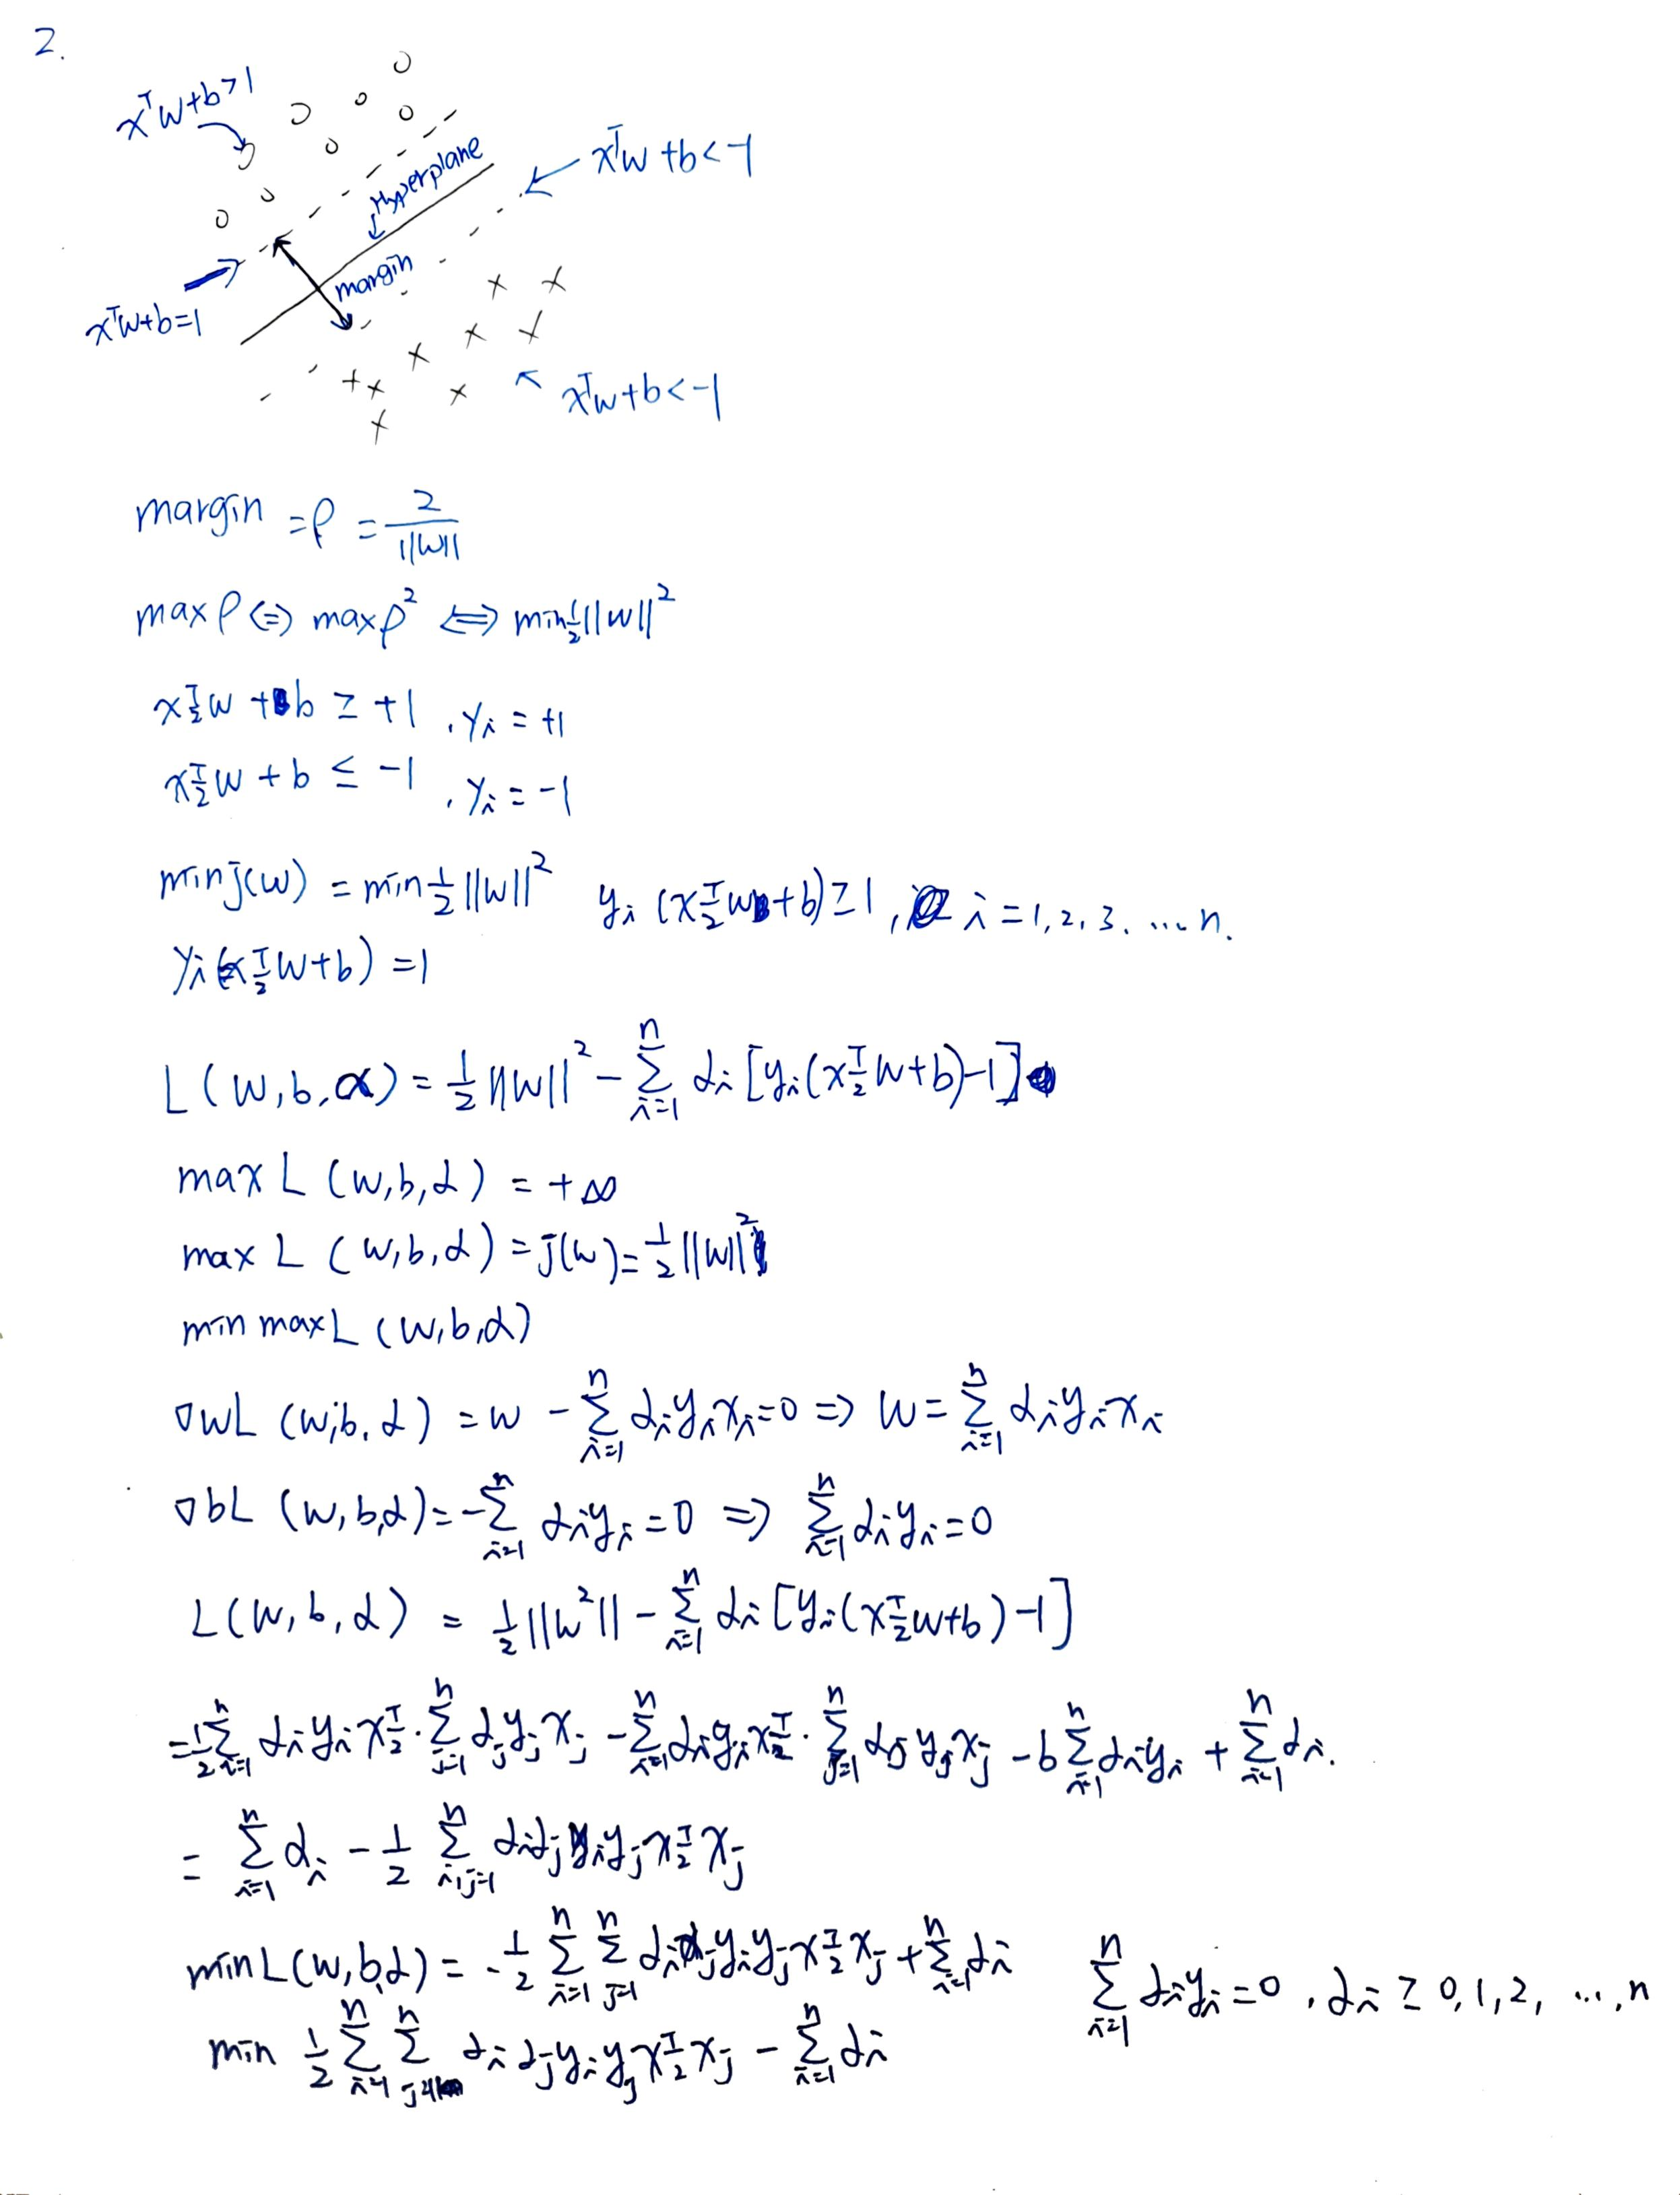 2.
xᵀw+b>1
xᵀw+b<-1
Hyperplane
margin
xᵀw+b=1
xᵀw+b<-1
margin = ρ = 2/||w||
max ρ ⇔ max ρ² ⇔ min ½||w||²
x½ᵀw + b ≥ +1 , yi = +1
x½ᵀw + b ≤ -1 , yi = -1
min j(w) = min ½||w||² yi (x½ᵀw+b) ≥ 1, i = 1, 2, 3, ... n.
yi(x½ᵀw+b) = 1
L(w,b,α) = ½||w||² - Σⁿi=1 αi [yi(x½ᵀw+b)-1]
max L (w,b,α) = +∞
max L (w,b,α) = j(w) = ½||w||²
min max L (w,b,α)
∇wL (w,b,α) = w - Σⁿi=1 αiyixi=0 ⇒ w = Σⁿi=1 αiyixi
∇bL (w,b,α) = -Σⁿi=1 αiyi=0 ⇒ Σⁿi=1 αiyi=0
L(w,b,α) = ½||w²|| - Σⁿi=1 αi [yi(x½ᵀw+b)-1]
= ½Σⁿi=1 αiyix½ᵀ · Σⁿj=1 αjyjxj - Σⁿi=1 αiyix½ᵀ · Σⁿj=1 αjyjxj - bΣⁿi=1 αiyi + Σⁿi=1 αi.
= Σⁿi=1 αi - ½ Σⁿi,j=1 αiαjyiyjx½ᵀxj
min L(w,b,α) = -½ Σⁿi=1 Σⁿj=1 αiαjyiyjx½ᵀxj + Σⁿi=1 αi Σⁿi=1 αiyi=0 , αi ≥ 0,1,2, ..., n
min ½ Σⁿi=1 Σⁿj=1 αiαjyiyjx½ᵀxj - Σⁿi=1 αi